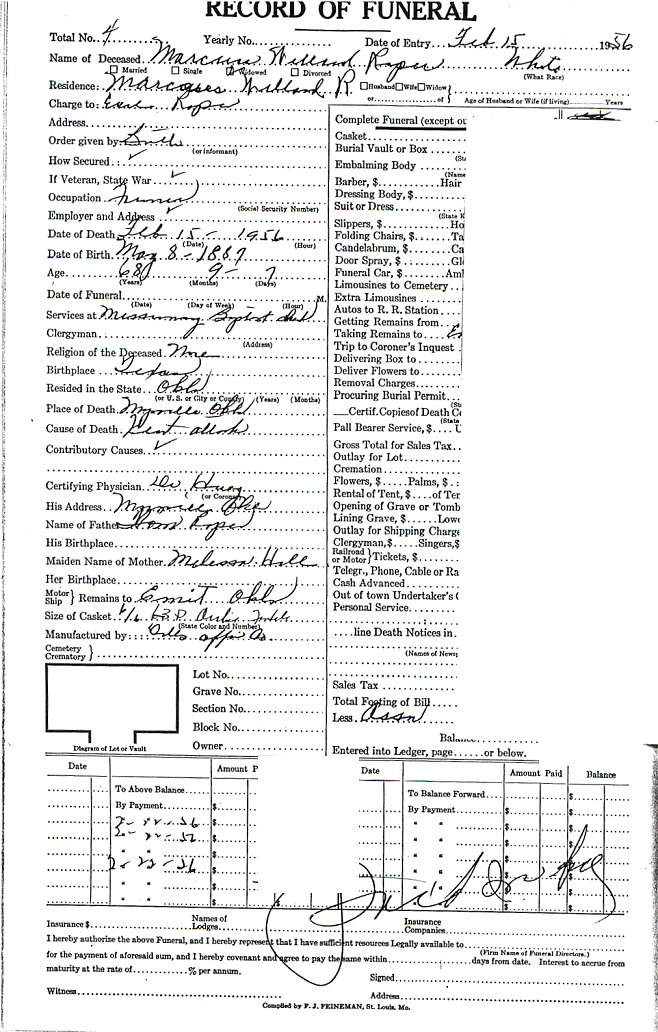 RECORD OF FUNERAL
Total No. 4 Yearly No. Date of Entry Feb 15 1956
Name of Deceased Marcus Willard Roper White
Married Single Widowed Divorced (What Race)
Residence: Willard R Husband Wife Widow
or of Age of Husband or Wife (if living) Years
Charge to: Roper
Address
Order given by
(or informant)
How Secured
If Veteran, State War
Occupation Farmer
(Social Security Number)
Employer and Address
Date of Death Feb 15 - 1956
(Date) (Hour)
Date of Birth May 8 - 1887
Age 68 9 - 7
(Years) (Months) (Days)
Date of Funeral M.
(Date) (Day of Week) (Hour)
Services at Missionary Baptist
Clergyman
(Address)
Religion of the Deceased None
Birthplace Texas
Resided in the State Okla
(or U.S. or City or County) (Years) (Months)
Place of Death Okla
Cause of Death Heart attack
Contributory Causes
Certifying Physician Dr
(or Coroner)
His Address Okla
Name of Father Roper
His Birthplace
Maiden Name of Mother Melissa Hall
Her Birthplace
Motor Ship } Remains to Okla
Size of Casket
(State Color and Number)
Manufactured by:
Cemetery
Crematory }
Lot No.
Grave No.
Section No.
Block No.
Owner
Diagram of Lot or Vault
Complete Funeral (except ou
Casket
Burial Vault or Box
(Sta
Embalming Body
(Name
Barber, $ Hair
Dressing Body, $
Suit or Dress
(State K
Slippers, $ Ho
Folding Chairs, $ Ta
Candelabrum, $ Ca
Door Spray, $ Gl
Funeral Car, $ Aml
Limousines to Cemetery
Extra Limousines
Autos to R. R. Station
Getting Remains from
Taking Remains to
Trip to Coroner's Inquest
Delivering Box to
Deliver Flowers to
Removal Charges
Procuring Burial Permit
(St
Certif. Copies of Death Ce
(State
Pall Bearer Service, $
Gross Total for Sales Tax
Outlay for Lot
Cremation
Flowers, $ Palms, $
Rental of Tent, $ of Ter
Opening of Grave or Tomb
Lining Grave, $ Lowe
Outlay for Shipping Charge
Clergyman, $ Singers, $
Railroad or Motor } Tickets, $
Telegr., Phone, Cable or Ra
Cash Advanced
Out of town Undertaker's
Personal Service
line Death Notices in
(Names of News
Sales Tax
Total Footing of Bill
Less Assn
Balance
Entered into Ledger, page or below.
Date Amount P Date Amount Paid Balance
To Above Balance To Balance Forward $
By Payment $ By Payment $
Insurance $ Names of Lodges Insurance Companies
I hereby authorize the above Funeral, and I hereby represent that I have sufficient resources Legally available to
(Firm Name of Funeral Directors.)
for the payment of aforesaid sum, and I hereby covenant and agree to pay the same within days from date. Interest to accrue from
maturity at the rate of % per annum. Signed
Witness Address
Compiled by F. J. FEINEMAN, St. Louis, Mo.